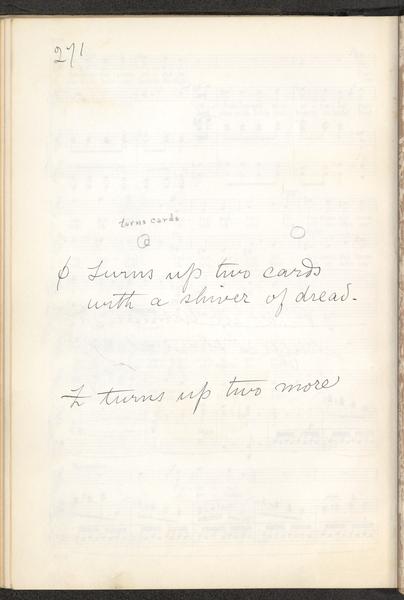 271
turns cards
¢ Turns up two cards
with a shiver of dread.
turns up two more